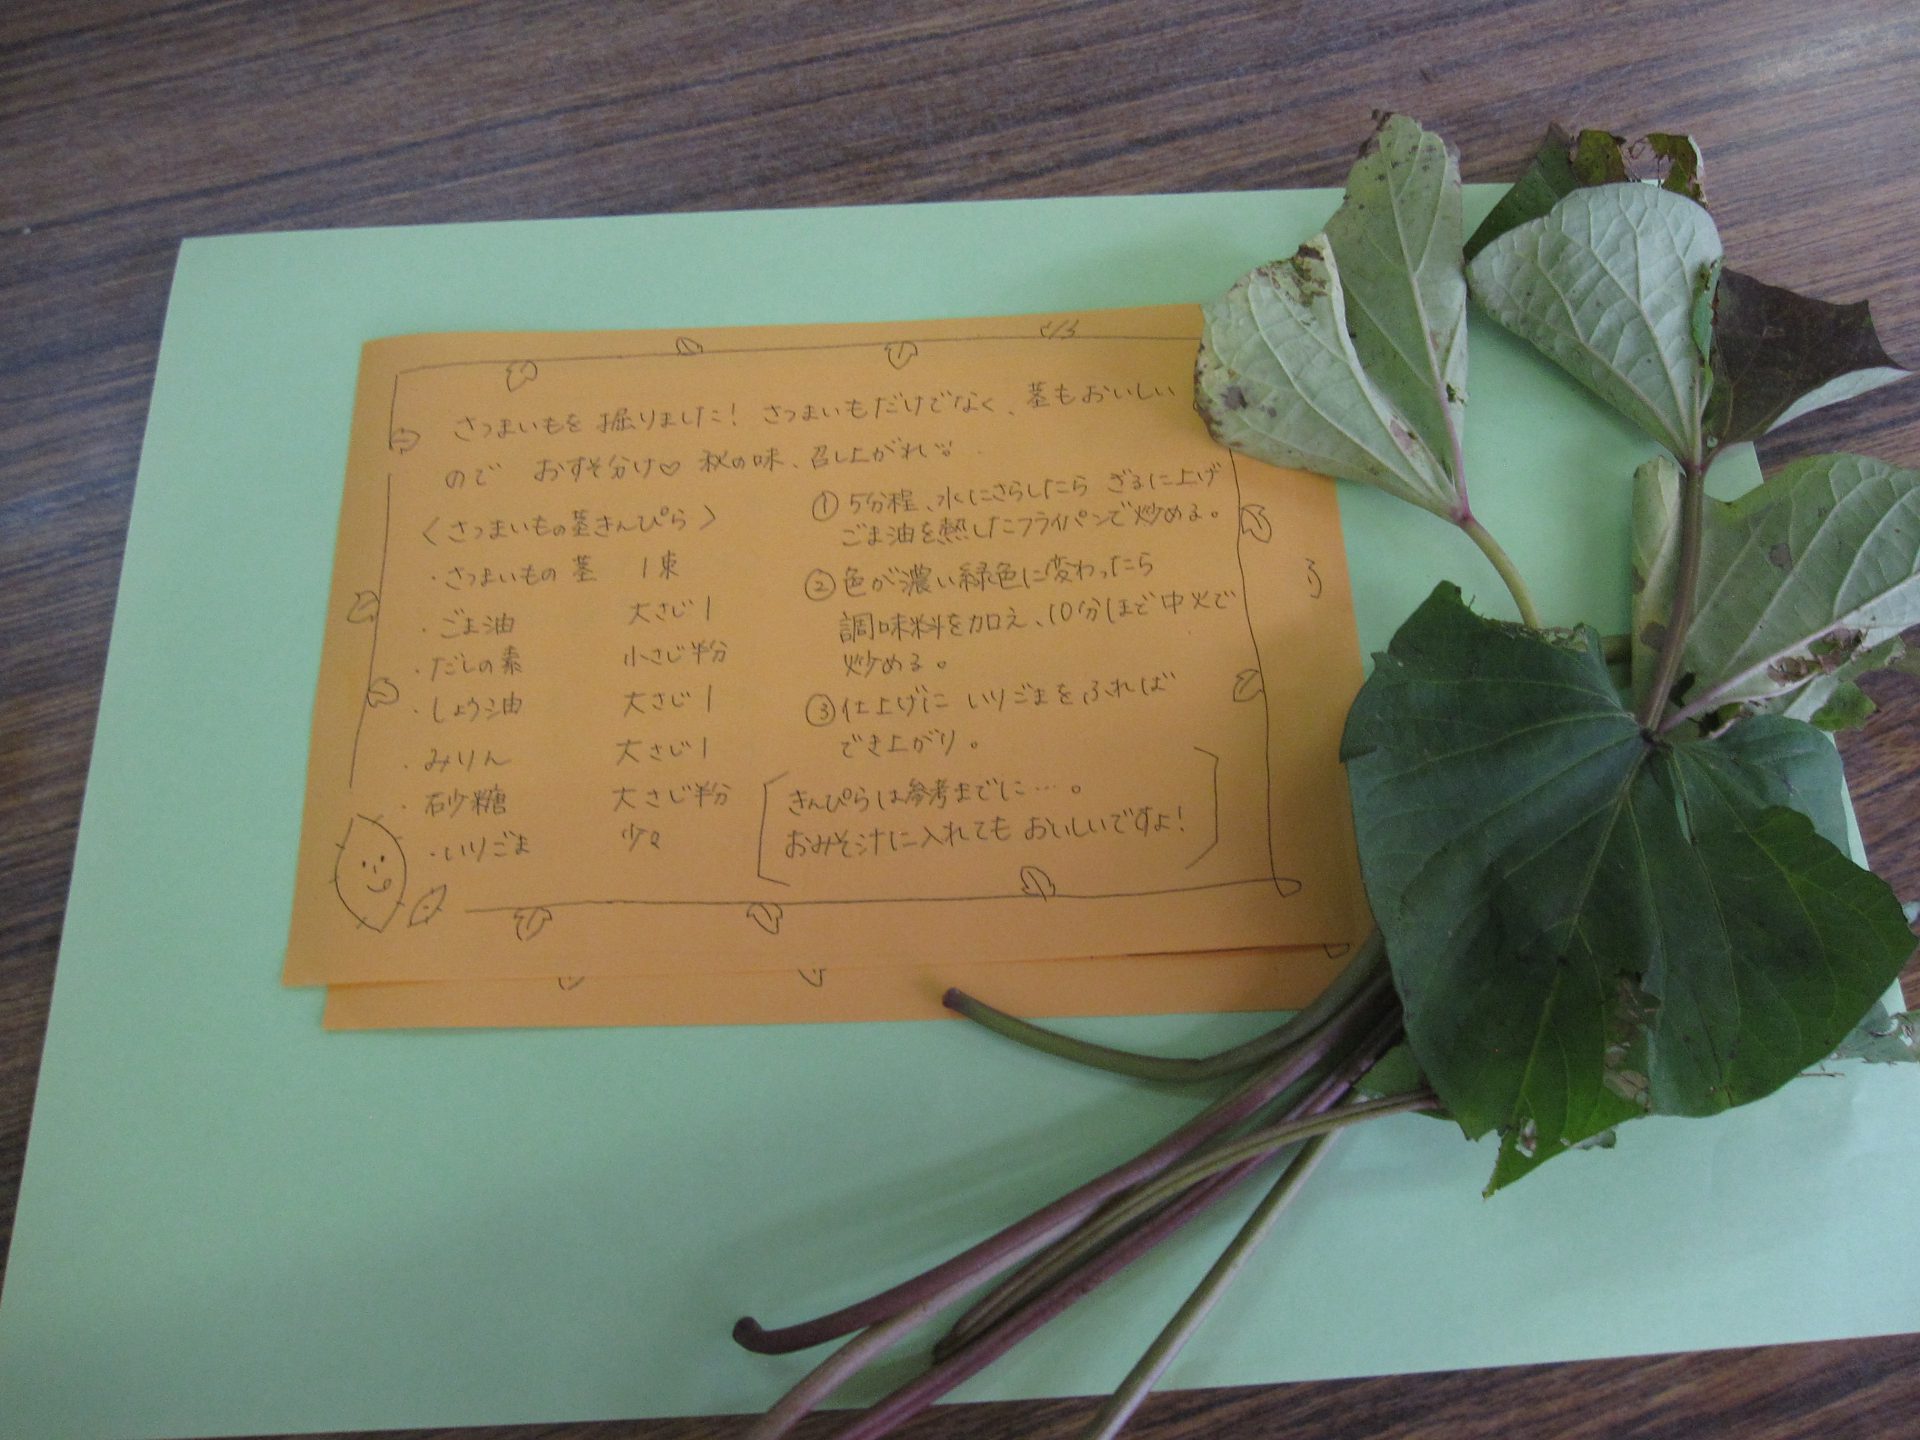 さつまいもを掘りました! さつまいもだけでなく、茎もおいしい
ので おすそ分け♡ 秋の味、召し上がれ
〈さつまいもの茎きんぴら〉
・さつまいもの茎 1束
・ごま油 大さじ1
・だしの素 小さじ半分
・しょう油 大さじ1
・みりん 大さじ1
・砂糖 大さじ半分
・いりごま 少々
①5分程、水にさらしたら ざるに上げ
ごま油を熱したフライパンで炒める。
②色が濃い緑色に変わったら
調味料を加え、10分ほど中火で
炒める。
③仕上げに いりごまをふれば
でき上がり。
きんぴらは参考までに…。
おみそ汁に入れても おいしいですよ!